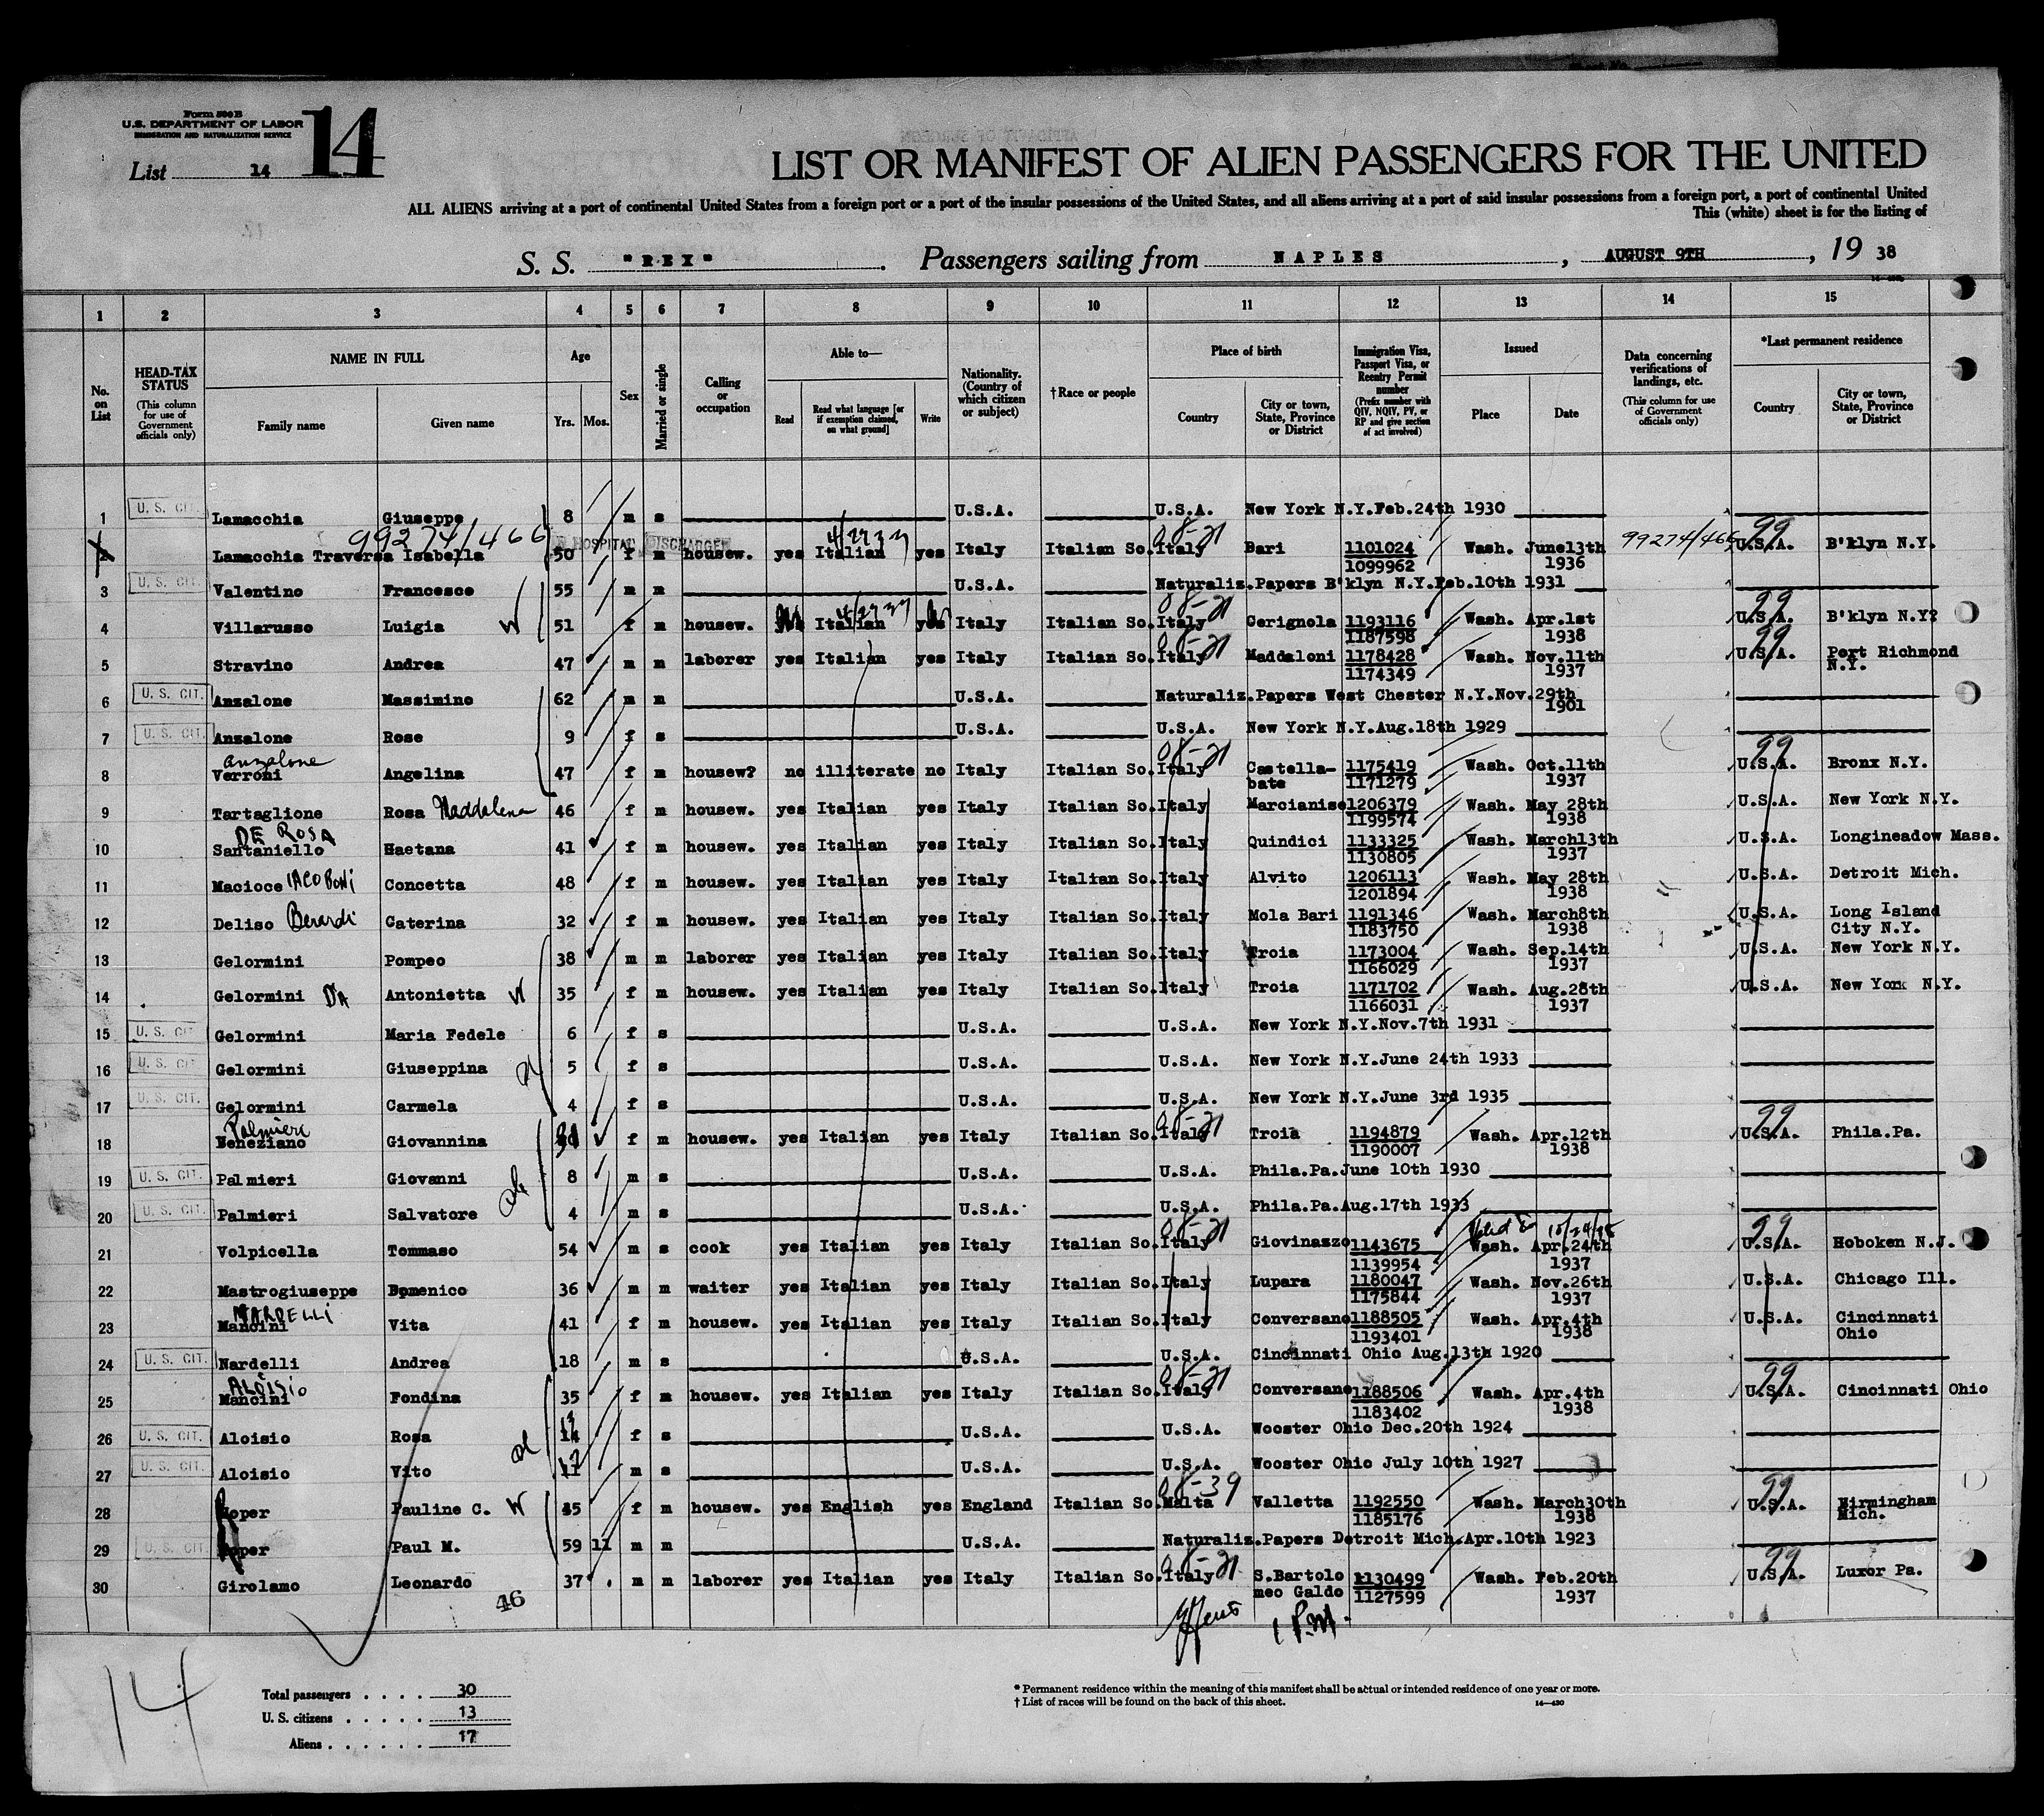 Form 500 B
U.S. DEPARTMENT OF LABOR
IMMIGRATION AND NATURALIZATION SERVICE
14
List 14
LIST OR MANIFEST OF ALIEN PASSENGERS FOR THE UNITED
ALL ALIENS arriving at a port of continental United States from a foreign port or a port of the insular possessions of the United States, and all aliens arriving at a port of said insular possessions from a foreign port, a port of continental United
This (white) sheet is for the listing of
S. S. "REX". Passengers sailing from NAPLES, AUGUST 9TH, 19 38
1 2 3 4 5 6 7 8 9 10 11 12 13 14 15
No. on List
HEAD-TAX STATUS (This column for use of Government officials only)
NAME IN FULL Family name Given name
Age Yrs. Mos.
Sex
Married or single
Calling or occupation
Able to— Read Read what language [or if exemption claimed, on what ground] Write
Nationality. (Country of which citizen or subject)
†Race or people
Place of birth Country City or town, State, Province or District
Immigration Visa, Passport Visa, or Reentry Permit number (Prefix number with QIV, NQIV, PV, or RP and give section of act involved)
Issued Place Date
Data concerning verifications of landings, etc. (This column for use of Government officials only)
*Last permanent residence Country City or town, State, Province or District
1 U. S. CIT. Lamacchia Giuseppe 8 m s U.S.A. U.S.A. New York N.Y.Feb.24th 1930
99274/466 HOSPITAL DISCHARGED 08-21 99274/466 99
2 Lamacchia Traversa Isabella 50 f m housew. yes Italian yes Italy Italian So. Italy Bari 1101024 Wash. June13th U.S.A. B'klyn N.Y.
1099962 1936
3 U. S. CIT. Valentino Francesco 55 m m U.S.A. Naturaliz.Papers B'klyn N.Y.Feb.10th 1931
08-21 99
4 Villarusso Luigia W 51 f m housew. yes Italian yes Italy Italian So. Italy Cerignola 1193116 Wash. Apr.1st U.S.A. B'klyn N.Y?
1187598 1938
08-21 99
5 Stravino Andrea 47 m m laborer yes Italian yes Italy Italian So. Italy Maddaloni 1178428 Wash. Nov.11th U.S.A. Port Richmond
1174349 1937 N.Y.
6 U. S. CIT. Anzalone Massimino 62 m m U.S.A. Naturaliz.Papers West Chester N.Y.Nov.29th
1901
7 U. S. CIT. Anzalone Rose 9 f s U.S.A. U.S.A. New York N.Y.Aug.18th 1929
Anzalone 08-21 99
8 Verroni Angelina 47 f m housew? no illiterate no Italy Italian So. Italy Castella- 1175419 Wash. Oct.11th U.S.A. Bronx N.Y.
bate 1171279 1937
9 Tartaglione Rosa Maddalena 46 f m housew. yes Italian yes Italy Italian So. Italy Marcianise 1206379 Wash. May 28th U.S.A. New York N.Y.
1199574 1938
DE ROSA
10 Santaniello Gaetana 41 f m housew. yes Italian yes Italy Italian So. Italy Quindici 1133325 Wash. March13th U.S.A. Longineadow Mass.
1130805 1937
11 Macioce IACOBONI Concetta 48 f m housew. yes Italian yes Italy Italian So. Italy Alvito 1206113 Wash. May 28th U.S.A. Detroit Mich.
1201894 1938
12 Deliso Berardi Caterina 32 f m housew. yes Italian yes Italy Italian So. Italy Mola Bari 1191346 Wash. March8th U.S.A. Long Island
1183750 1938 City N.Y.
13 Gelormini Pompeo 38 m m laborer yes Italian yes Italy Italian So. Italy Troia 1173004 Wash. Sep.14th U.S.A. New York N.Y.
1166029 1937
14 Gelormini Antonietta W 35 f m housew. yes Italian yes Italy Italian So. Italy Troia 1171702 Wash. Aug.28th U.S.A. New York N.Y.
1166031 1937
15 U. S. CIT Gelormini Maria Fedele 6 f s U.S.A. U.S.A. New York N.Y.Nov.7th 1931
16 U. S. CIT Gelormini Giuseppina 5 f s U.S.A. U.S.A. New York N.Y.June 24th 1933
17 U. S. CIT. Gelormini Carmela 4 f s U.S.A. U.S.A. New York N.Y.June 3rd 1935
Palmieri 08-21 99
18 Beneziano Giovannina f m housew. yes Italian yes Italy Italian So. Italy Troia 1194879 Wash. Apr.12th U.S.A. Phila.Pa.
1190007 1938
19 U. S. CIT. Palmieri Giovanni 8 m s U.S.A. U.S.A. Phila.Pa.June 10th 1930
20 U. S. CIT. Palmieri Salvatore 4 m s U.S.A. U.S.A. Phila.Pa.Aug.17th 1933
08-21 99
21 Volpicella Tommaso 54 m s cook yes Italian yes Italy Italian So. Italy Giovinazzo 1143675 Wash. Apr.24th U.S.A. Hoboken N.J.
1139954 1937
22 Mastrogiuseppe Domenico 36 m m waiter yes Italian yes Italy Italian So. Italy Lupara 1180047 Wash. Nov.26th U.S.A. Chicago Ill.
1175844 1937
NARDELLI
23 Mancini Vita 41 f m housew. yes Italian yes Italy Italian So. Italy Conversano 1188505 Wash. Apr.4th U.S.A. Cincinnati
1193401 1938 Ohio
24 U. S. CIT. Nardelli Andrea 18 m s U.S.A. U.S.A. Cincinnati Ohio Aug.13th 1920
ALOISIO 08-21 99
25 Mancini Fondina 35 f m housew. yes Italian yes Italy Italian So. Italy Conversano 1188506 Wash. Apr.4th U.S.A. Cincinnati Ohio
1183402 1938
26 U. S. CIT. Aloisio Rosa 14 f s U.S.A. U.S.A. Wooster Ohio Dec.20th 1924
27 U. S. CIT. Aloisio Vito 11 m s U.S.A. U.S.A. Wooster Ohio July 10th 1927
08-39 99
28 Pauline C. W f m housew. yes English yes England Italian So. Malta Valletta 1192550 Wash. March30th U.S.A. Birmingham
1185176 1938 Mich.
29 U. S. CIT. Paul M. 59 11 m m U.S.A. Naturaliz.Papers Detroit Mich.Apr.10th 1923
08-21 99
30 Girolamo Leonardo 37 m m laborer yes Italian yes Italy Italian So. Italy S.Bartolo 1130499 Wash. Feb.20th U.S.A. Luxor Pa.
meo Galdo 1127599 1937
46
1 P.M.
14
Total passengers . . . . 30
U. S. citizens . . . . . 13
Aliens . . . . . . 17
* Permanent residence within the meaning of this manifest shall be actual or intended residence of one year or more.
† List of races will be found on the back of this sheet. 14—430